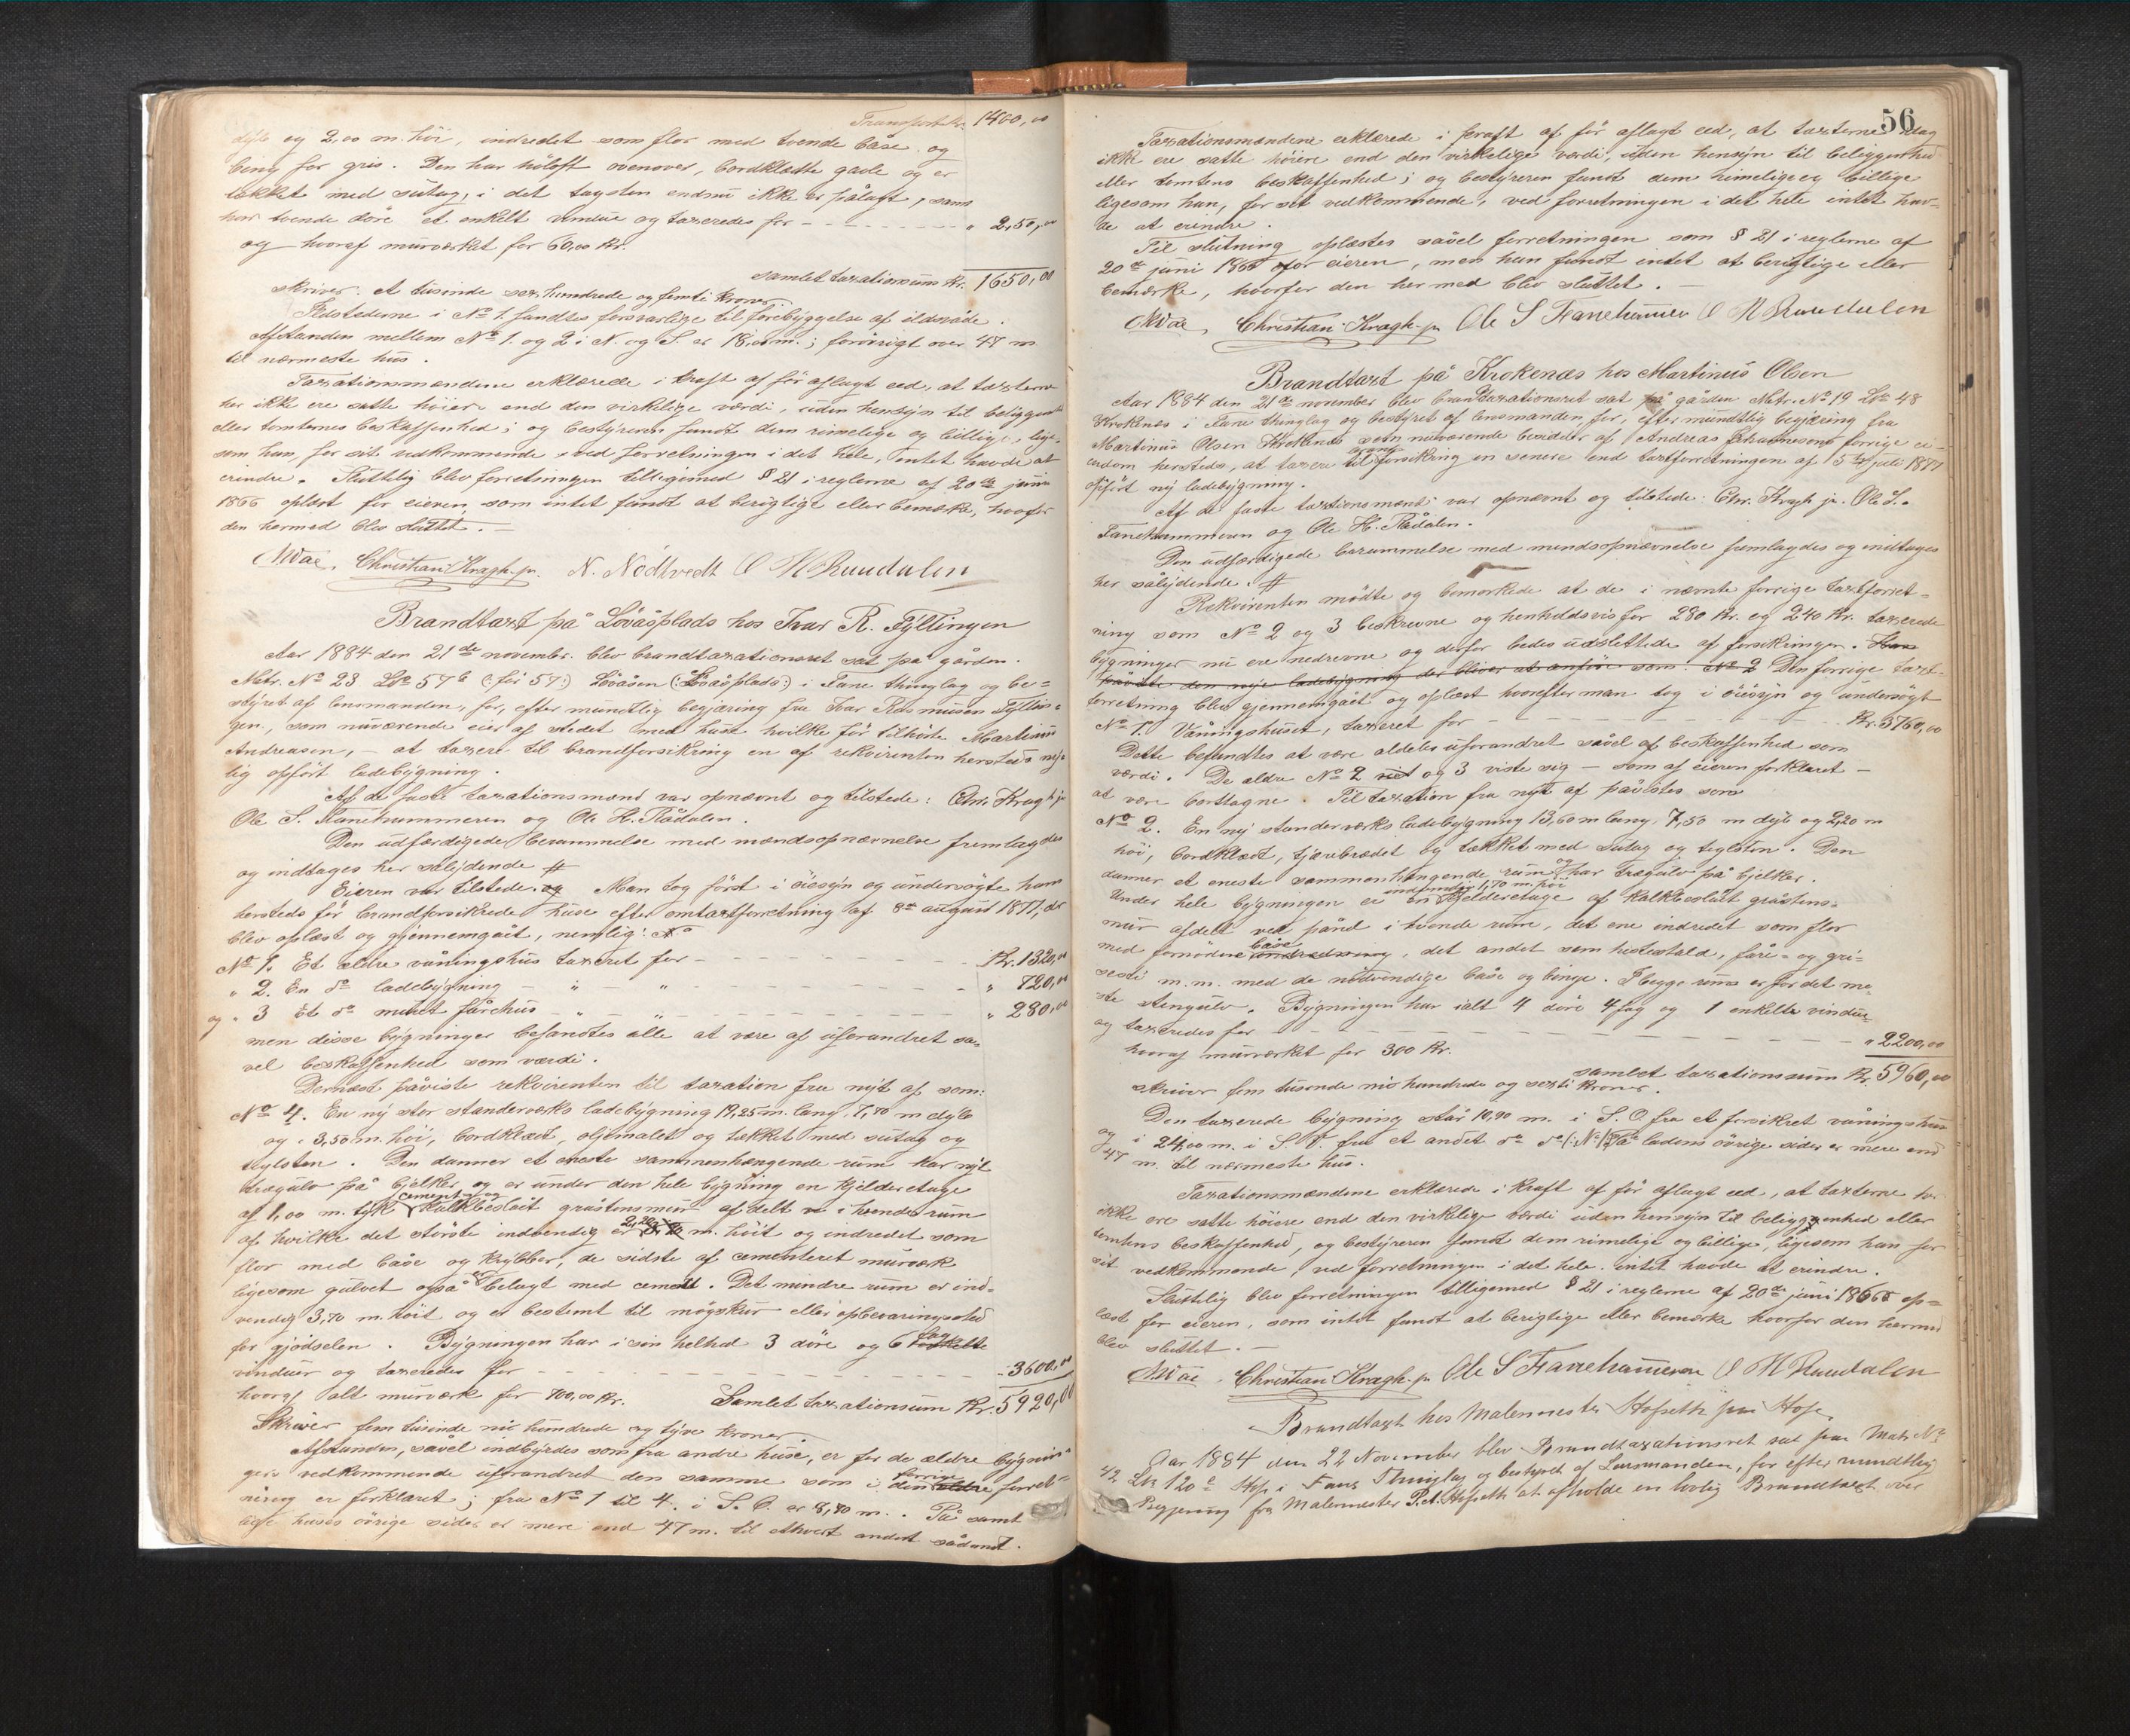 Transport Kr. 1400,00
dyb og 2,00 m. höi, indredet som flor med tvende båse og
beng for gris. Den har höloft ovenover, bordklædte gavle og er
tækket med sutag, i det tagsten endnu ikke er pålagt, samt
har tvende döre et enkelt vindue og taxeredes for - - - - " 250,00
og hvoraf murværket for 60,00 Kr.
samlet taxationssum Kr. 1650,00
skriver: et tusinde sex hundrede og femti kroner.
Ildstederne i No 1. fandtes forsvarlige til forebyggelse af ildsvåde.
Afstanden mellem No 1. og 2 i N. og S. er 18,00 m.; forövrigt over 47 m
til nærmeste hus.
Taxationsmændene erklærede i kraft af för aflagt eed, at taxterne
her ikke ere satte höiere end den virkelige værdi, uden hensyn til beliggenhed
eller tomternes beskaffenhed; og bestyreren fandt dem rimelige og billige, lige-
som han, for sit vedkommende ved forretningen i det hele, intet havde at
erindre. Sluttelig blev forretningen tilligemed § 21 i reglerne af 20de juni
1866 oplæst for eieren, som intet fandt at berigtige eller bemærke, hvorfor
den hermed blev sluttet. -
Christian Kragh jr. N. Nödtvedt O H Raadalen
Brandtaxt på Lövåsplads hos Ivar R. Tyltingen
Aar 1884 den 21de november. blev brandtaxationsret sat på gården
Matr. No 23 Lb 57b (: för 57:) Lövåsen (: Lövåsplads:) i Fane thinglag og be-
styret af lensmanden, for, efter mundtlig begjæring fra Ivar Rasmussen Tyltin-
gen, som nuværende eier af stedet med huse hvilke för tilhörte Martinus
Andreasen, - at taxere til brandforsikring en af rekvirenten hersteds ny-
lig opfört ladebygning.
Af de faste taxationsmænd var opnævnt og tilstede: Chr. Kragh jr
Ole S. Fanehammeren og Ole H. Rådalen.
Den udfærdigede berammelse med mændsopnævnelse fremlagdes
og indtages her sålydende #
Eieren var tilstede. og Man tog först i öiesyn og undersögte hans
hersteds för brandforsikrede huse efter omtaxtforretning af 8de august 1877, der
blev oplæst og gjennemgået, nemlig: No
No 1. Et ældre våningshus taxeret for - - - - Kr. 1320,00
" 2. En do ladebygning - " - " - - - - " 720,00
og " 3 Et do muret fårehus - " - - - - " 280,00
men disse bygninger befandtes alle at være af uforandret så-
vel beskaffenhed som værdi.
Dernæst påviste rekvirenten til taxation fra nyt af som:
No 4. En ny stor standerværks ladebygning 19,25 m. lang, 7,70 m dyb
og 3,50 m. höi, bordklædt, oljemalet og tækket med sutag og
teglsten. Den danner et eneste sammenhængende rum har nyt
trægulv på bjelker og er under den hele bygning en kjelderetage
af 1,00 m. tyk cement og kalkbeslåt gråstensmur afdelt i tvende rum
af hvilke det störste indvendig er 2,20 m. höit og indredet som
flor med båse og krybber, de sidste af cementeret murværk
ligesom gulvet også er belagt med cement. Det mindre rum er ind-
vendig 3,70 m. höit og er bestemt til mögskur eller opbevaringssted
for gjödselen. Bygningen har i sin helhed 3 döre og 6 fag enkelte
vinduer og taxeredes for - - - - " 3600,00
hvoraf alt murværk for 700,00 Kr. Samlet taxationssum Kr. 5920,00
Skriver fem tusinde ni hundrede og tyve kroner.
Afstanden, såvel indbyrdes som fra andre huse, er for de ældre bygnin-
gers vedkommende uforandret den samme som i den forrige ældre forret-
ning er forklaret; fra No 1 til 4. i S. O. er 8,80 m.. På samt-
lige huses övrige sider er mere end 47 m. til ethvert andet sådant.
56
Taxationsmændene erklærede i kraft af för aflagt eed, at taxterne idag
ikke ere satte höiere end den virkelige værdi, uden hensyn til beliggenhed
eller tomtens beskaffenhed; og bestyreren fandt dem rimelige og billige
ligesom han, for sit vedkommende, ved forretningen i det hele intet hav-
de at erindre.
Til slutning oplæstes såvel forretningen som § 21 i reglerne af
20de juni 1866 for eieren, men han fandt intet at berigtige eller
bemærke, hvorfor den hermed blev sluttet. -
Christian Kragh jr Ole S Fanehammeren O H Raadalen
Brandtaxt på Krokenæs hos Martinus Olsen
Aar 1884 den 21de november blev brandtaxationsret sat på gården Matr. No 19 Lb 48
Krokenæs i Fane thinglag og bestyret af lensmanden, for, efter mundtlig begjæring fra
Martinus Olsen Krokenæs som nuværende besidder af Andreas Johannesens forrige ei-
endom hersteds, at taxere til brandforsikring en senere end taxtforretningen af 15de juli 1877
opfört ny ladebygning.
Af de faste taxtionsmænd var opnævnt og tilstede: Chr. Kragh jr. Ole S.
Fanehammeren og Ole H. Rådalen.
Den udfærdigede berammelse med mændsopnævnelse fremlagdes og indtages
her sålydende. #
Rekvirenten mödte og bemærkede at de i nævnte forrige taxtforret-
ning som No 2 og 3 beskrevne og henholdsvis for 280 Kr. og 240 Kr. taxerede
bygninger nu ere nedrevne og derfor bedes udslettede af forsikringen. Han
påviste den nye ladebygning der bliver at anföre som No 2 Den forrige taxt-
forretning blev gjennemgået og oplæst hvorefter man tog i öiesyn og undersögt
No 1. Våningshuset, taxeret for - - - - Kr. 3760,00
Dette befandtes at være aldeles uforandret såvel af beskaffenhed som
værdi. De ældre No 2 og 3 viste sig - som af eieren forklaret -
at være borttagne. Til taxation fra nyt af påvistes som
No 2. En ny standerværks ladebygning 13,60 m lang, 7,50 m dyb og 2,20 m
höi, bordklædt, tjærebrædet og tækket med sutag og teglsten. Den
danner et eneste sammenhængende rum og har trægulv på bjelker.
Under hele bygningen er en indvendig 1,70 m. höi kjelderetage af kalkbeslåt gråstens-
mur afdelt ved pånel i tvende rum, det ene indredet som flor
med fornödne båse indredning, det andet som hestestald, fåre- og gri-
sesti m.m. med de nödvendige båse og benge. I begge rum er for det me-
ste stengulv. Bygningen har ialt 4 döre 4 fag og 1 enkelte vindue
og taxeredes for - - - - " 2200,00
hvoraf murværket for 300 Kr.
samlet taxationssum Kr. 5960,00
skriver fem tusende ni hundrede og sexti kroner.
Den taxerede bygning står 10,90 m. i S. O. fra et forsikret våningshus
og i 24,00 m. i S. V. fra et andet do do (: No 1:) På ladens övrige sider er mere end
47 m. til nærmeste hus.
Taxationsmændene erklærede i kraft af för aflagt eed, at taxterne her
ikke ere satte höiere end den virkelige værdi uden hensyn til beliggenhed eller
tomtens beskaffenhed, og bestyreren fandt dem rimelige og billige, ligesom han for
sit vedkommende, ved forretningen i det hele intet havde at erindre.
Sluttelig blev forretningen tilligemed § 21 i reglerne af 20de juni 1866 op-
læst for eieren, som intet fandt at berigtige eller bemærke hvorfor den hermed
blev sluttet. -
Christian Kragh jr Ole S Fanehammeren O H Raadalen
Brandtaxt hos Malermester Hofseth paa Hop.
Aar 1884 den 22 November blev Brandtaxationsret sat paa Matr. No
42 Lb 120c Hop i Fane Thinglag og bestyret af Lensmanden, for efter mundtlig
Begjæring fra Malermester P. A. Hofseth at afholde en lovlig Brandtaxt over